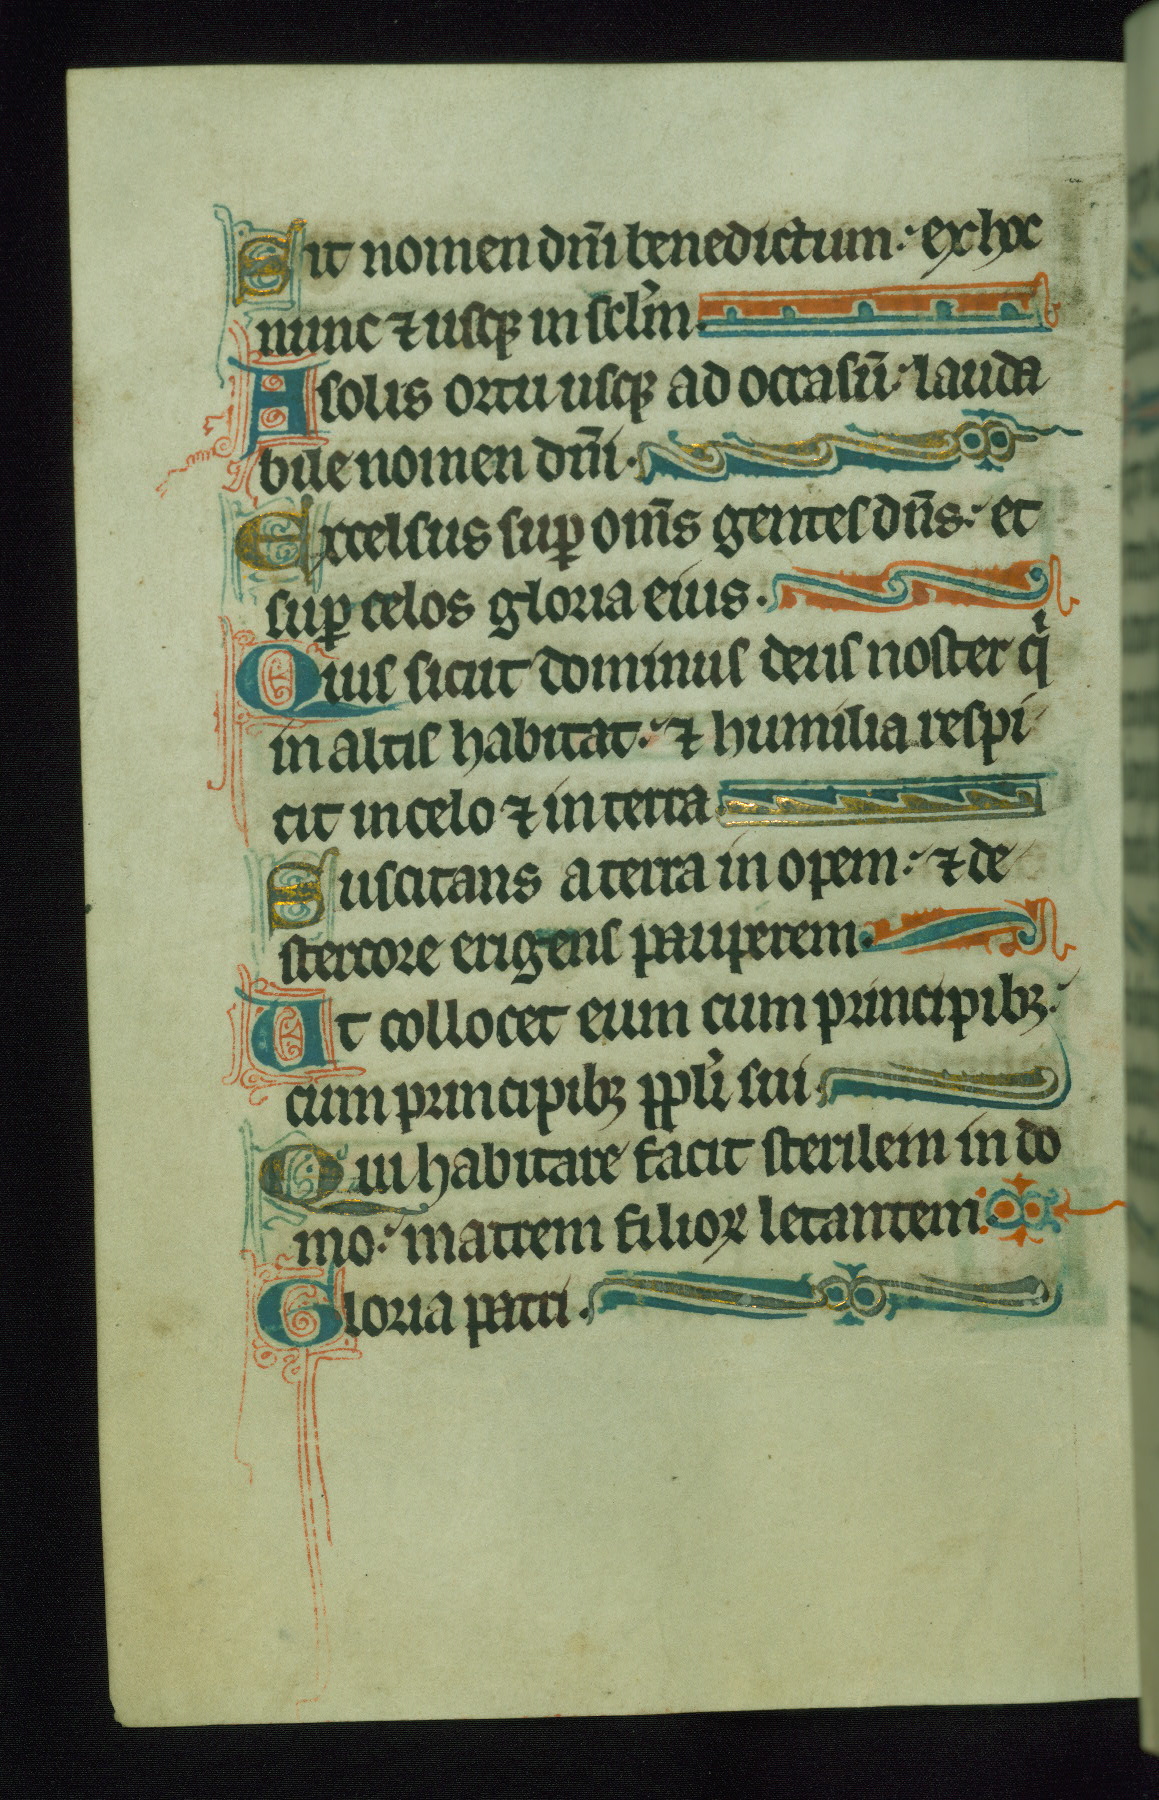 Sit nomen dñi benedictum: ex hoc
nunc ⁊ usqꝫ in sclm̄.
A solis ortu usqꝫ ad occasū: lauda
bile nomen dñi.
Excelsus suꝑ om̄s gentes dñs: et
suꝑ celos gloria eius.
Quis sicut dominus deus noster qͥ
in altis habitat: ⁊ humilia respi
cit in celo ⁊ in terra.
Suscitans a terra inopem: ⁊ de
stercore erigens pauperem.
Ut collocet eum cum principibꝫ:
cum principibꝫ ppl̓i sui.
Qui habitare facit sterilem in do
mo: matrem filioꝝ letantem.
Gloria patri.